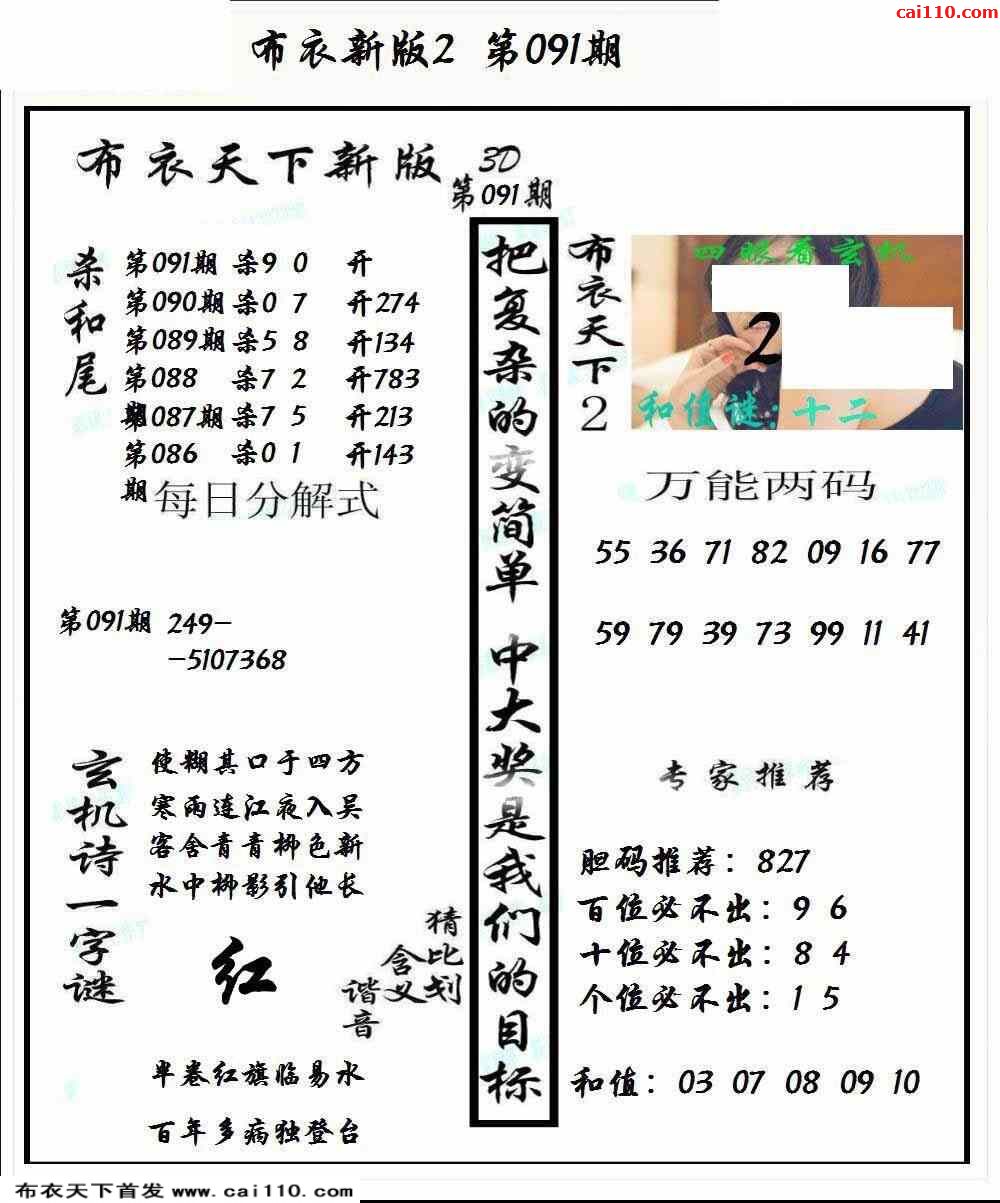 cai110.com
布衣新版2 第091期
布衣天下新版 3D
第091期
杀和尾
第091期 杀9 0 开
第090期 杀0 7 开274
第089期 杀5 8 开134
第088期 杀7 2 开783
第087期 杀7 5 开213
第086期 杀0 1 开143
每日分解式
第091期 249-
-5107368
玄机诗一字谜
使糊其口于四方
寒雨连江夜入吴
客舍青青柳色新
水中柳影引他长
红
猜比划
含义
谐音
半卷红旗临易水
百年多病独登台
把复杂的变简单 中大奖是我们的目标
布衣天下2
四眼看玄机
2
和值谜:十二
万能两码
55 36 71 82 09 16 77
59 79 39 73 99 11 41
专家推荐
胆码推荐：827
百位必不出：9 6
十位必不出：8 4
个位必不出：1 5
和值：03 07 08 09 10
布衣天下首发 www.cai110.com